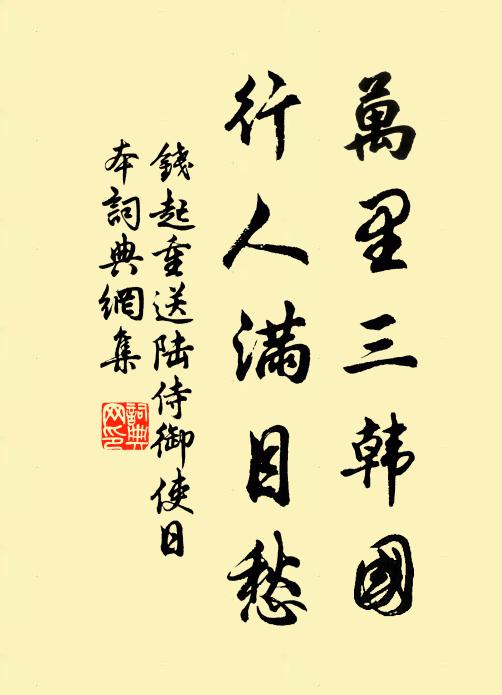 萬里三韩國
行人滿目愁
錢起重送陆侍御使日
本詞典網集
詞典
网印